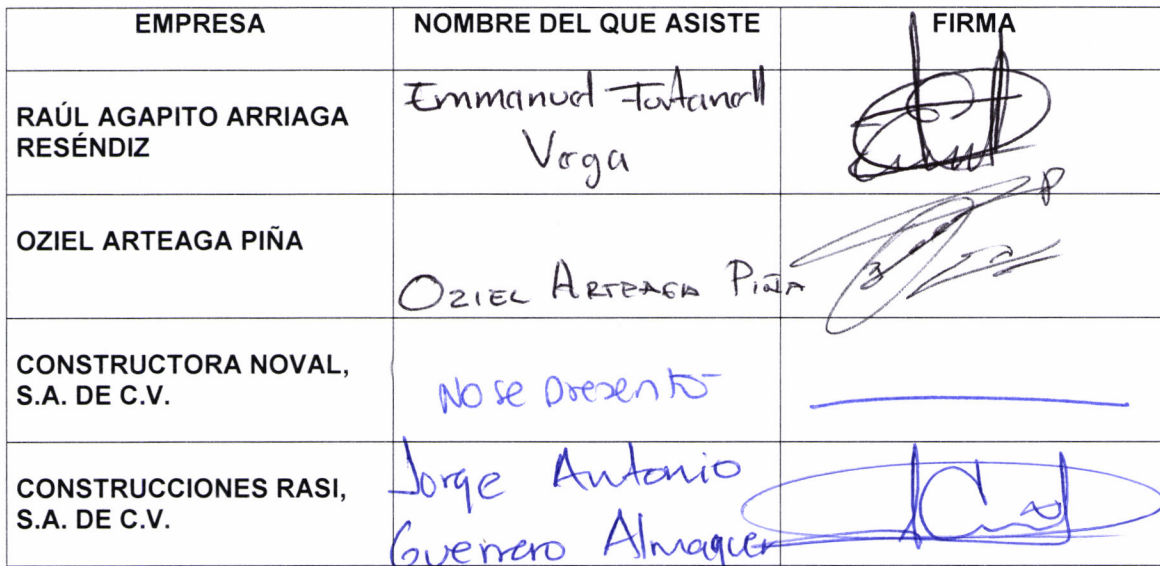 EMPRESA NOMBRE DEL QUE ASISTE FIRMA
RAÚL AGAPITO ARRIAGA
RESÉNDIZ
Emmanuel
Vega
OZIEL ARTEAGA PIÑA
OZIEL ARTEAGA PIÑA
CONSTRUCTORA NOVAL,
S.A. DE C.V.
No se presentó
CONSTRUCCIONES RASI,
S.A. DE C.V.
Jorge Antonio
Guerrero Almaguer